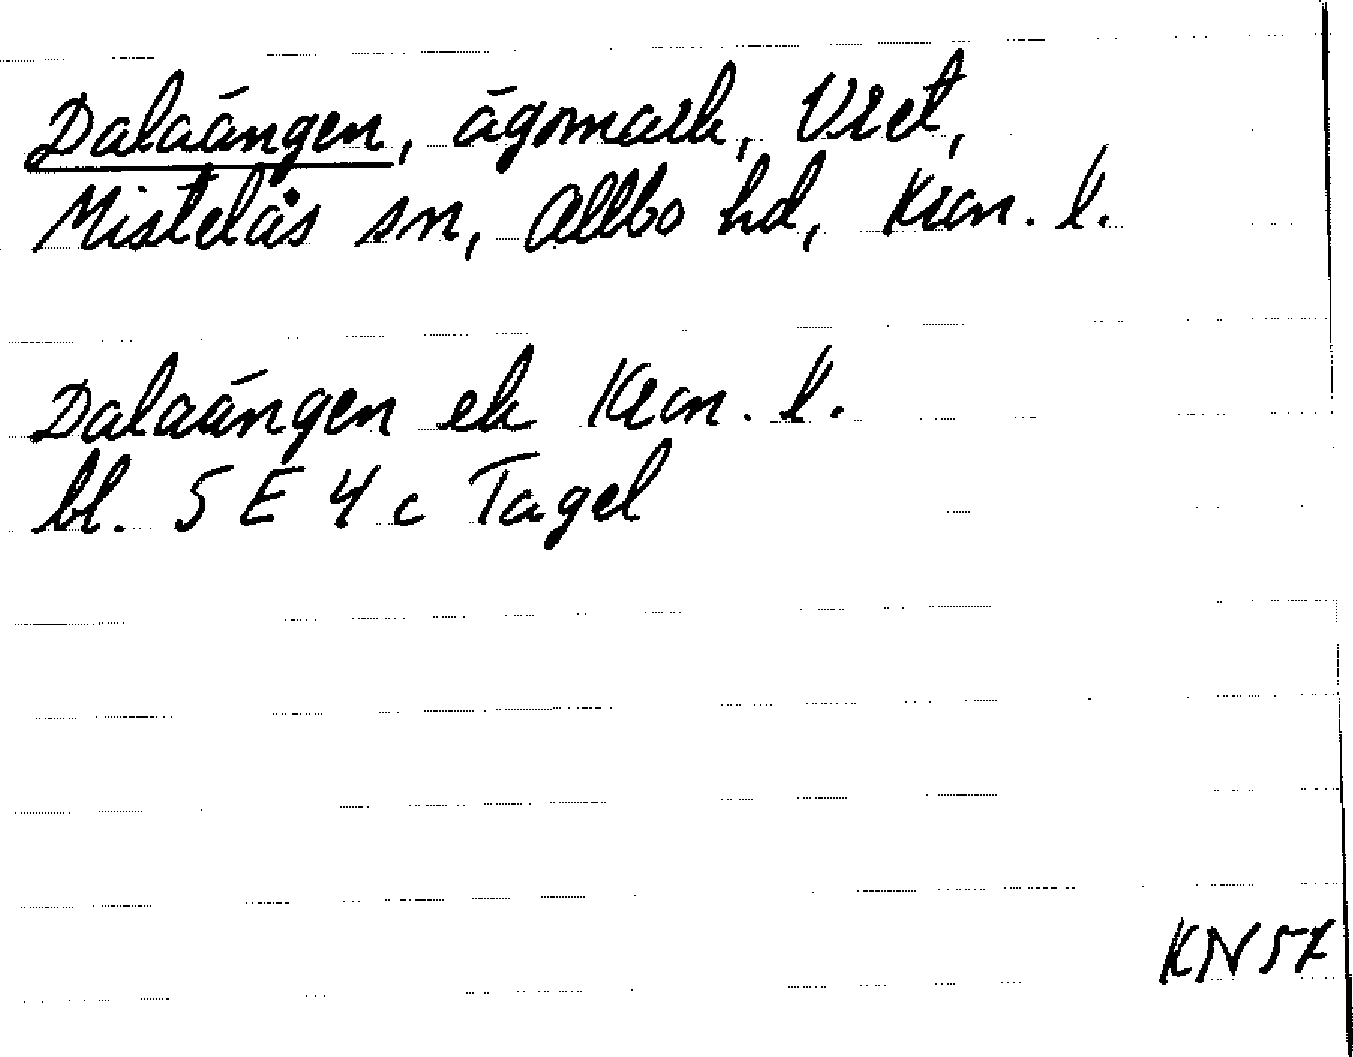 Dalaängen, ägomark, Vret,
Mistelås sn, Allbo hd, Kron. l.
Dalaängen ek Kron. l.
bl. 5 E 4 c Tagel
KN 57